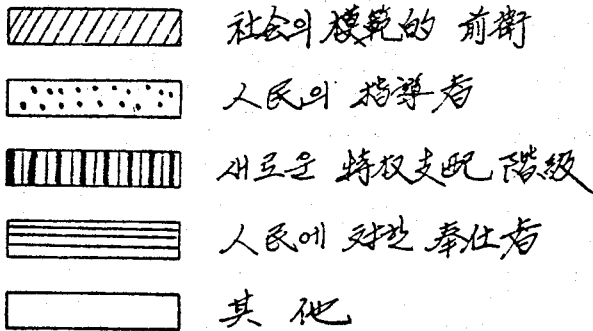 社会의 模範的 前衛
人民의 指導者
새로운 特权支配 階級
人民에 対한 奉仕者
其 他